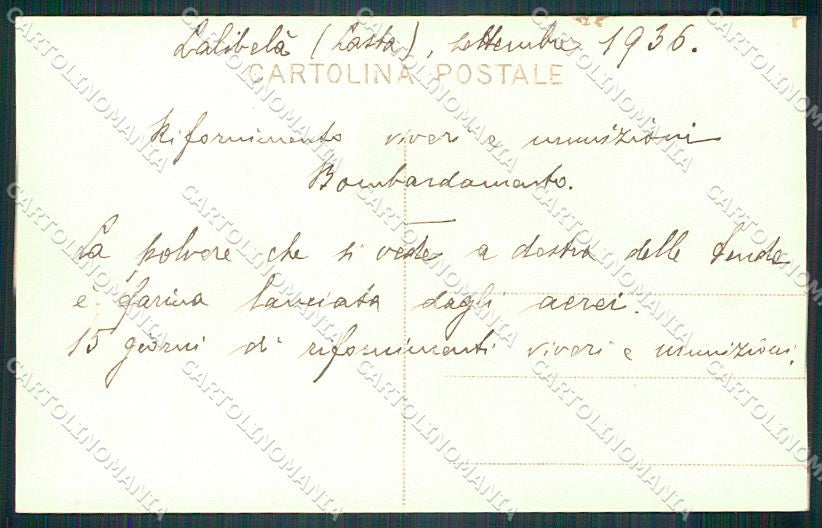 Lalibelà (Lasta), settembre 1936.
CARTOLINA POSTALE
Rifornimento viveri e munizioni
Bombardamento.
La polvere che si vede a destra delle tende
è farina lanciata dagli aerei.
15 giorni di rifornimenti viveri e munizioni.
CARTOLINOMANIA